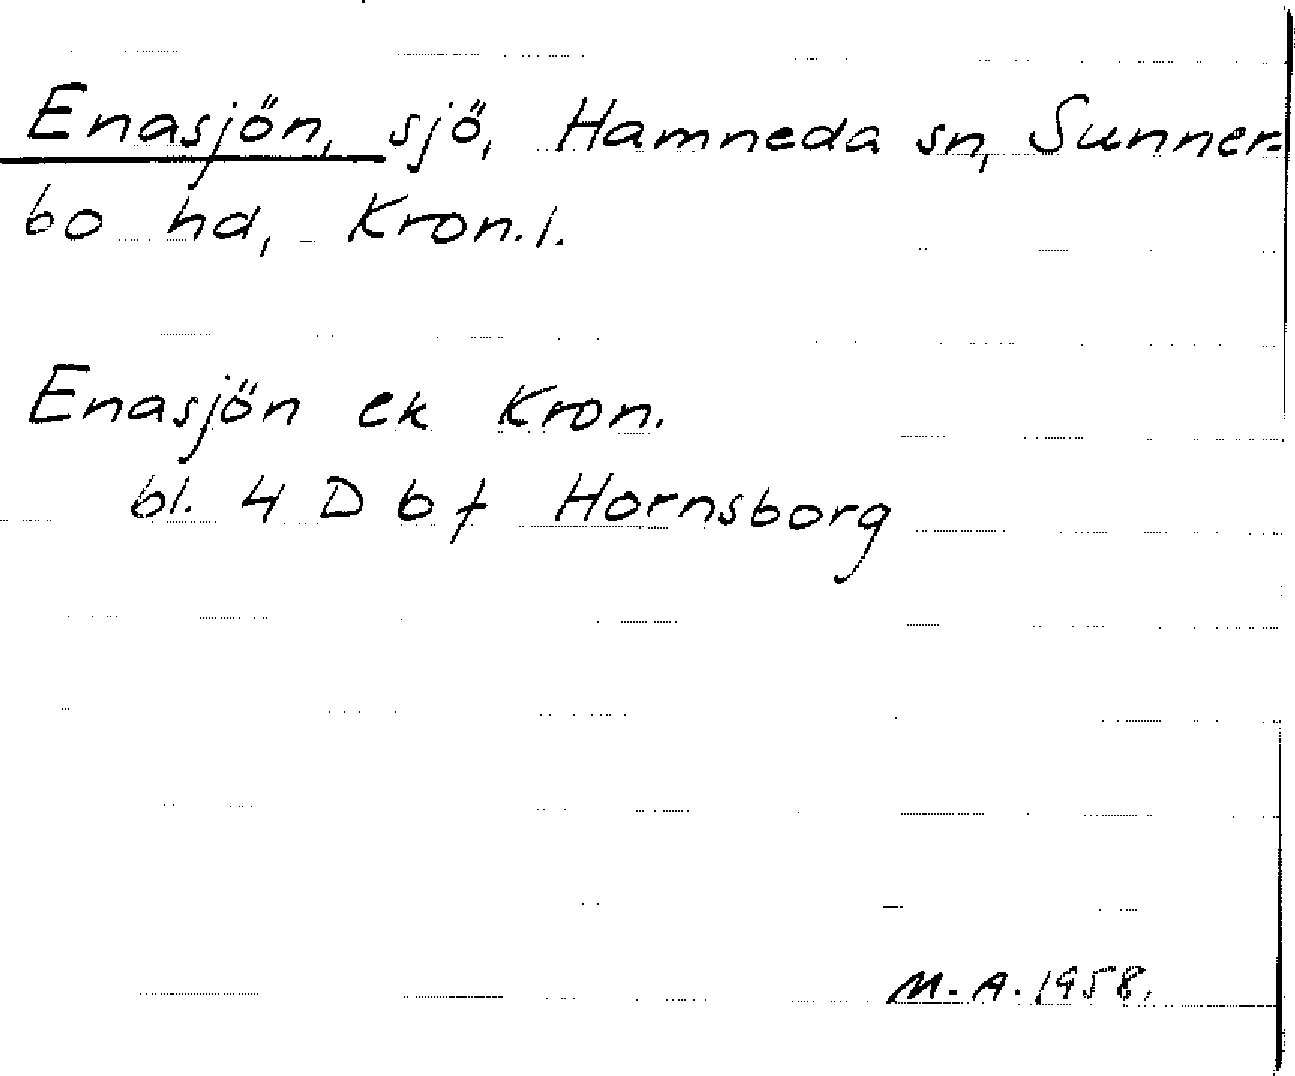 Enasjön, sjö, Hamneda sn, Sunner-
bo hd, Kron.l.
Enasjön ek Kron.
bl. 4 D b f Hornsborg
M.A. 1958.